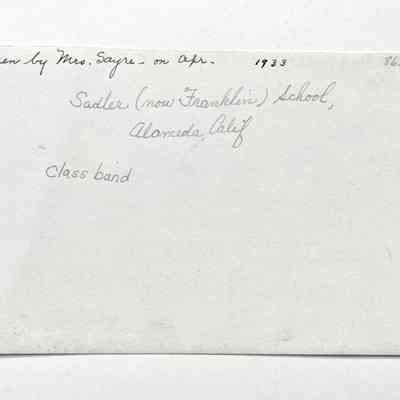 en by Mrs. Sayre - on Apr. 1933 86
Sadler (now Franklin) School,
Alameda, Calif
Class band